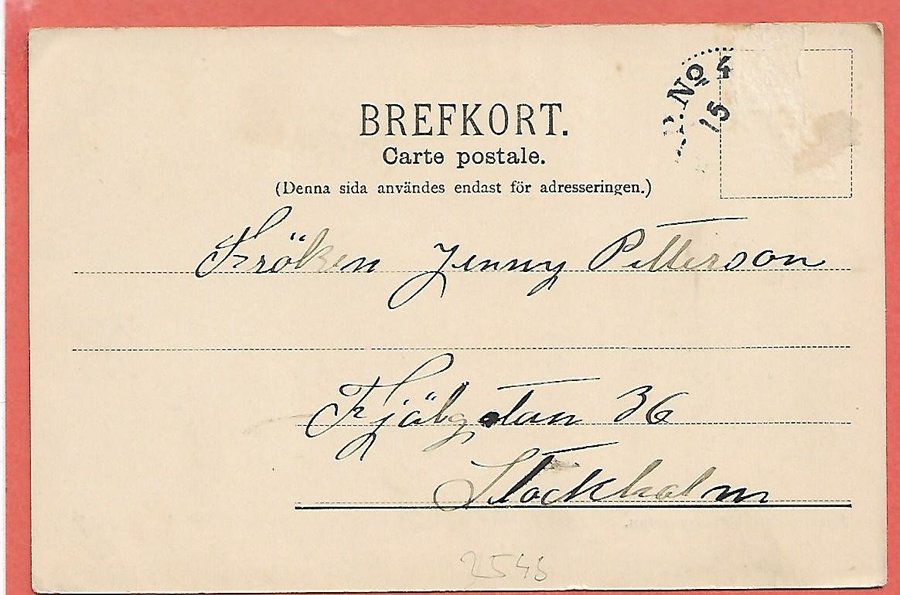 BREFKORT.
Carte postale.
(Denna sida användes endast för adresseringen.)
P.No 4
15
Fröken Jenny Petterson
Fjälgatan 36
Stockholm
2545